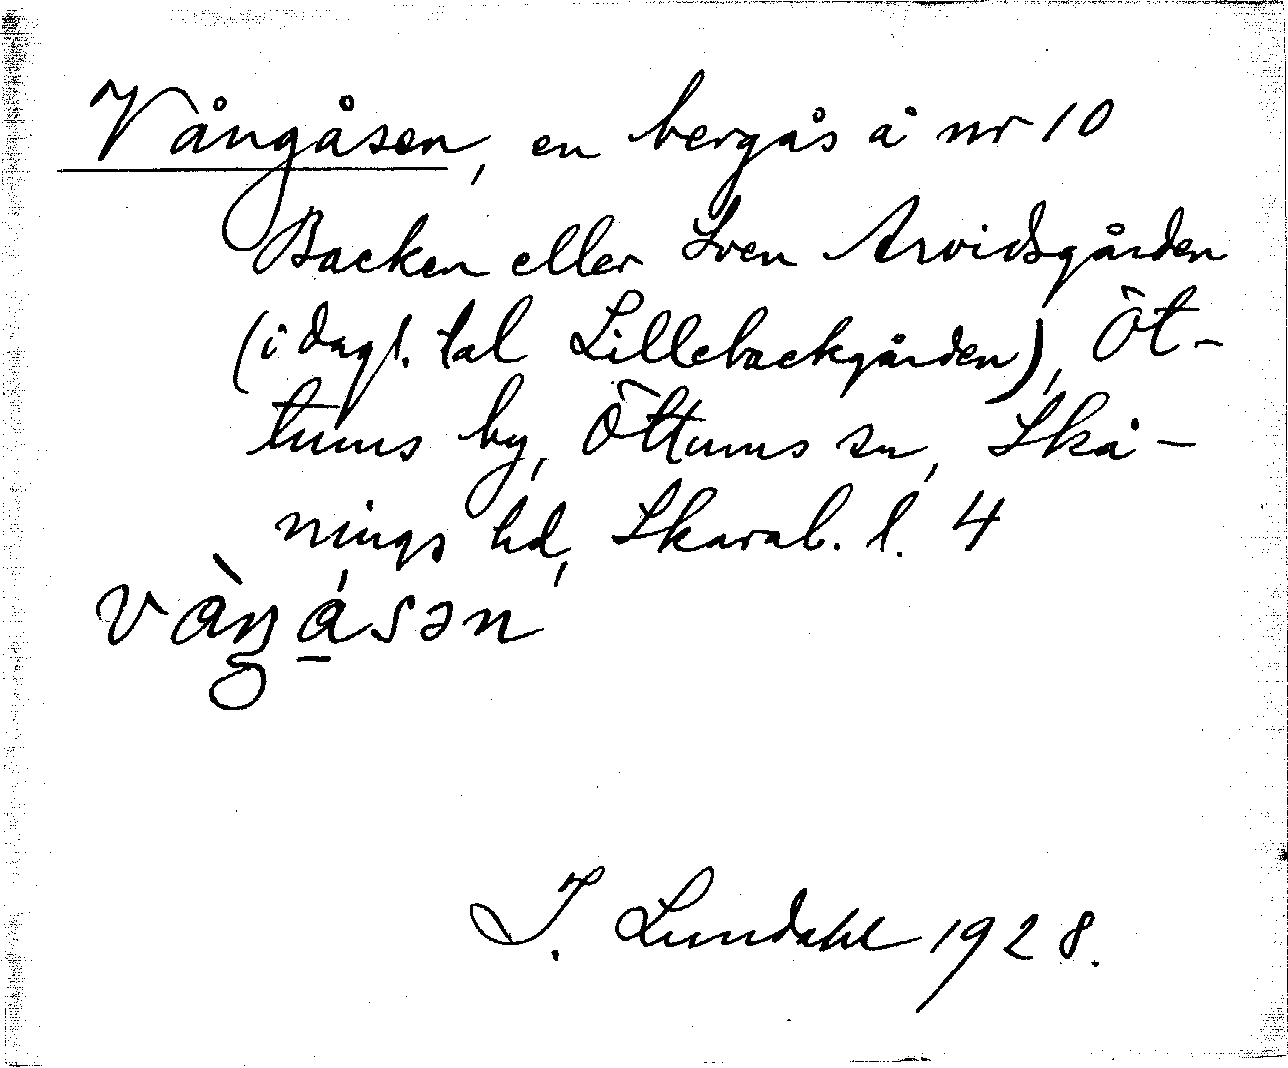 Vångåsen, en bergås å nr 10
Backen eller Sven Arvidsgården
(i dagl. tal Lillebackgården), Öt-
tums by, Öttums sn, Skå-
nings hd, Skarab. l. 4
I. Lundahl 1928.